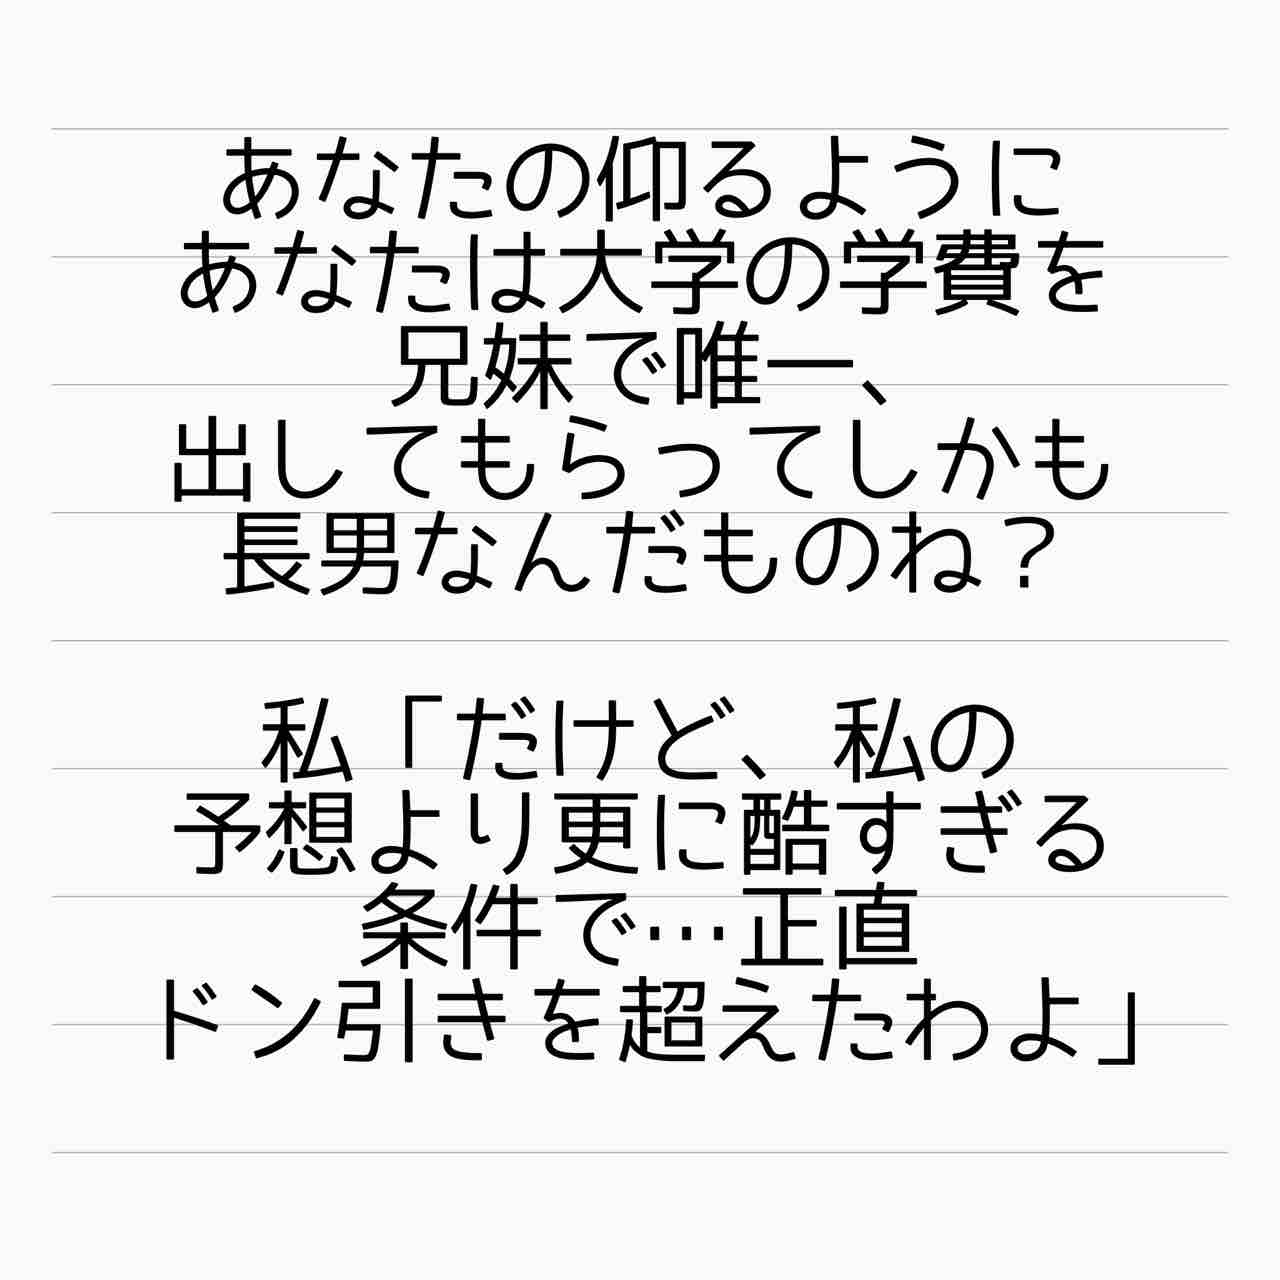 あなたの仰るように
あなたは大学の学費を
兄妹で唯一、
出してもらってしかも
長男なんだものね？
私「だけど、私の
予想より更に酷すぎる
条件で…正直
ドン引きを超えたわよ」